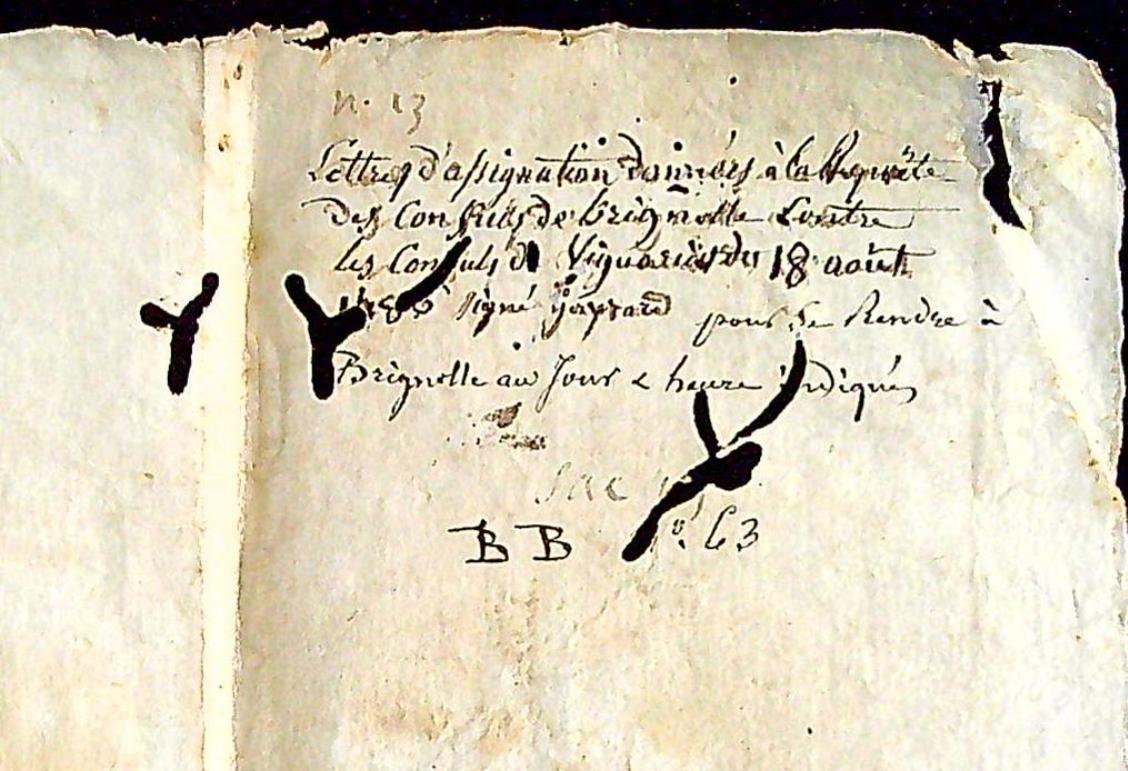 n. 13
Lettres d'assignation données à la Requête
des Consuls de brignolle Contre
les Consuls de Viguerie du 18 août
signé pour se Rendre à
Brignolle au Jour & heure indiqués
Sac
BB n°. 63